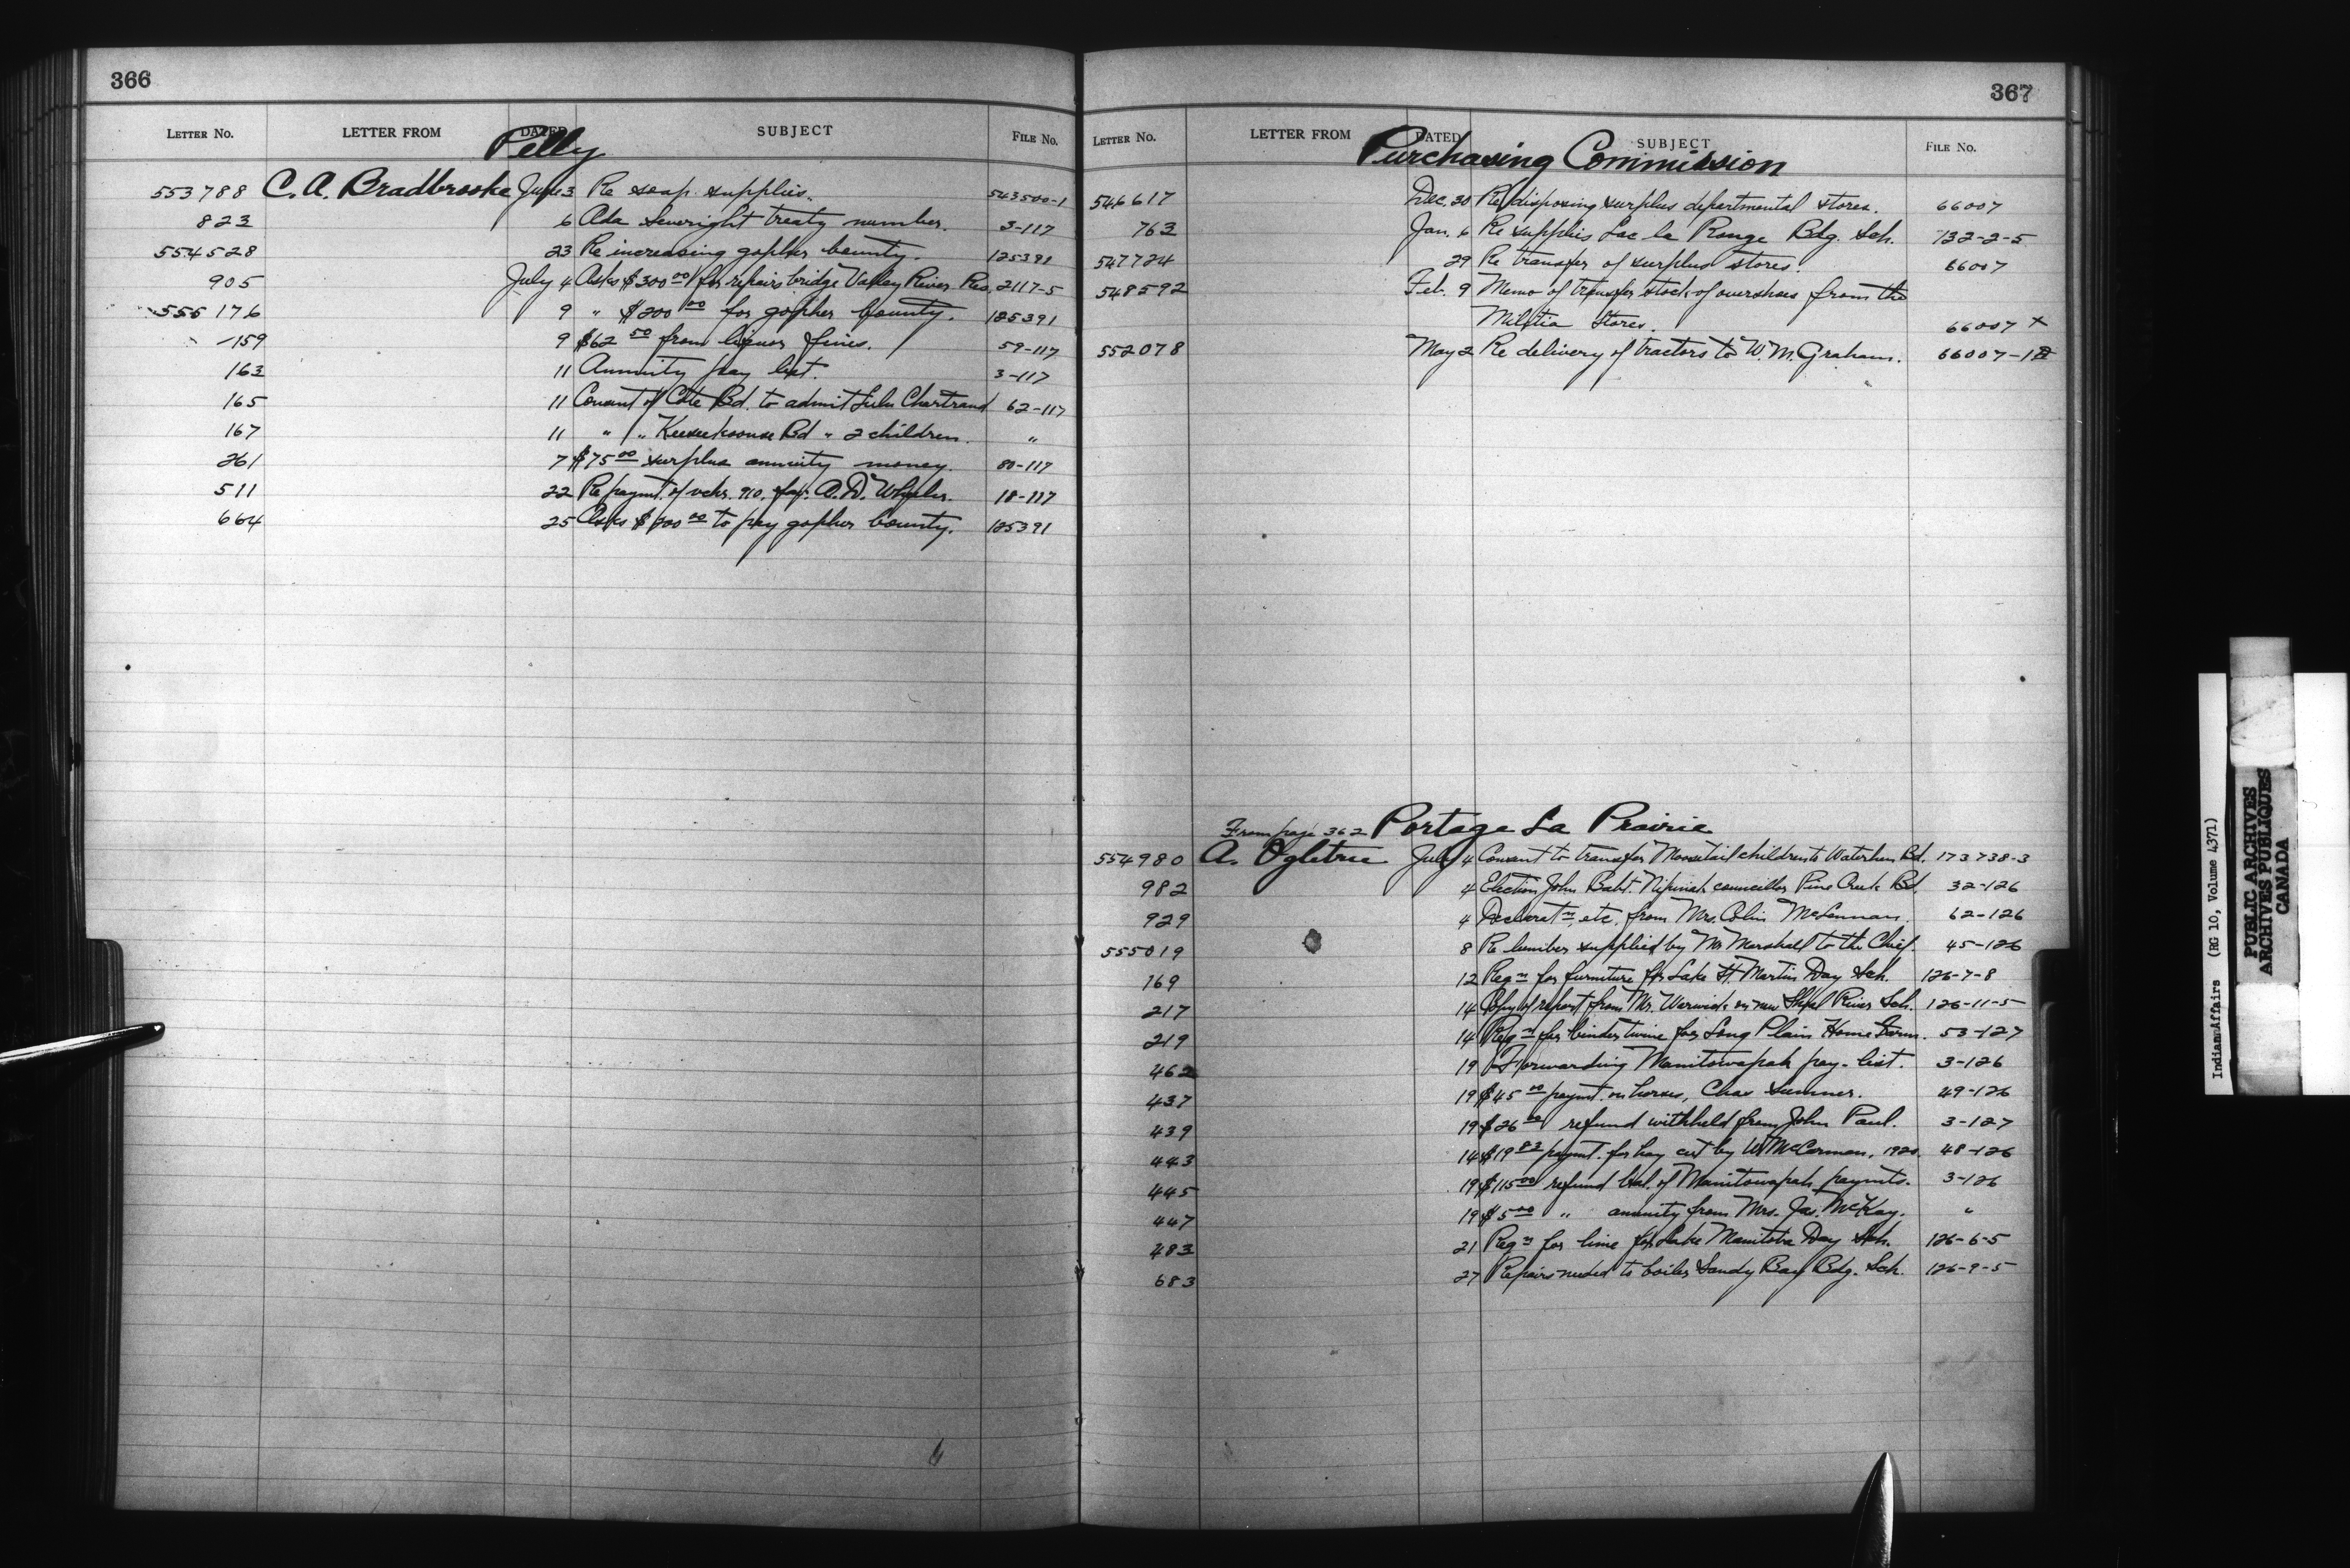 366
LETTER NO. LETTER FROM DATED SUBJECT FILE No.
Pelly
553788 C. A. Bradbrooke June 3 Re soap supplies. 543500-1
823 6 Ada Severight treaty number. 3-117
554528 23 Re increasing gopher bounty. 125391
905 July 4 Asks $300 00/ for repairs bridge Valley River Res. 2117-5
555176 9 " $200 00 for gopher bounty. 125391
159 9 $62 50 from liquor fines. 59-117
163 11 Annuity pay list. 3-117
165 11 Consent of Cote Bd. to admit Lulu Chartrand 62-117
167 11 " " Keeseekoouse Bd " 2 children. "
261 7 $75 00 surplus annuity money. 80-117
511 22 Re paymt. of vchr. 910. fav. A. D. Wheeler. 18-117
664 25 Asks $200 00 to pay gopher bounty. 125391
367
LETTER NO. LETTER FROM DATED SUBJECT FILE No.
Purchasing Commission
546617 Dec. 30 Re disposing surplus departmental stores. 66007
763 Jan. 6 Re supplies Lac la Ronge Bdg. Sch. 132-2-5
547724 29 Re transfer of surplus stores. 66007
548592 Feb. 9 Memo of transfer stock of overshoes from the
Militia Stores. 66007 X
552078 May 2 Re delivery of tractors to W. M. Graham. 66007-1
From page 362 Portage La Prairie
554980 A. Ogletree July 4 Consent to transfer Moosetail children to Waterhen Bd. 173738-3
982 4 Election John Babt. Nipinak councillor Pine Creek Bd. 32-126
929 4 Declaratn, etc. from Mrs. Colin McLennan. 62-126
555019 8 Re lumber supplied by Mr Marshall to the Chief. 45-126
169 12 Reqn for furniture for Lake St. Martin Day Sch. 126-7-8
217 14 Copy of report from Mr. Warwick on new Shoal River Sch. 126-11-5
219 14 Reqn for binder twine for Long Plain Home Farm. 53-127
462 19 Forwarding Manitowapah pay-list. 3-126
437 19 $45 00 paymt. on horses, Chas Sumner. 49-126
439 19 $26 00 refund withheld from John Paul. 3-127
443 14 $19 82 paymt. for hay cut by W McCorman, 1920. 48-126
445 19 $115 00 refund bal. of Manitowapah paymts. 3-126
447 19 $5 00 " annuity from Mrs. Jas. McKay. "
483 21 Reqn for lime for Lake Manitoba Day Sch. 126-6-5
683 27 Repairs needed to boiler Sandy Bay Bdg. Sch. 126-9-5
Indian Affairs (RG 10, Volume 4371)
PUBLIC ARCHIVES
ARCHIVES PUBLIQUES
CANADA